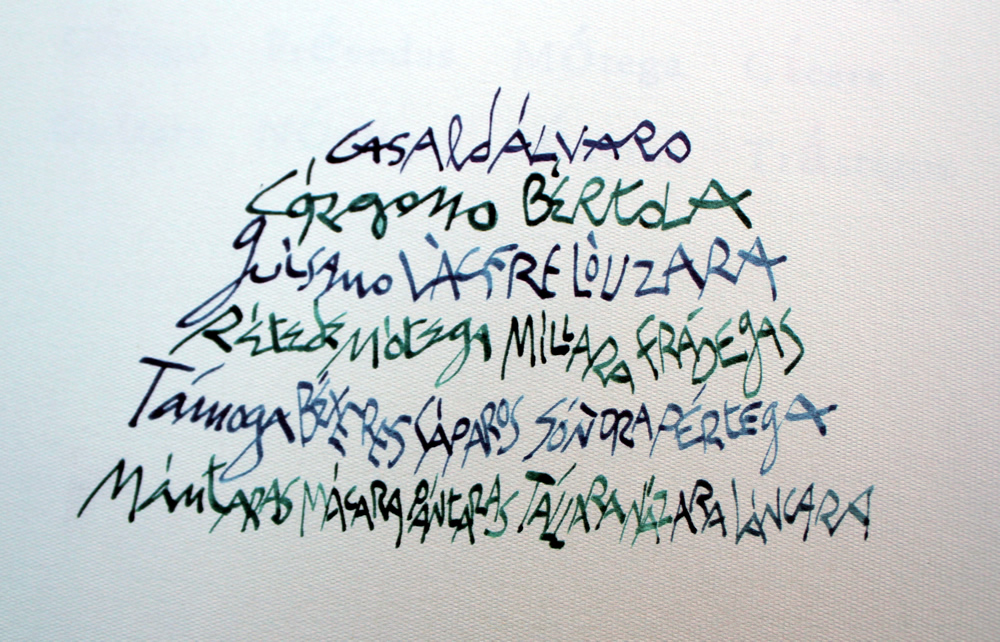 CASAldÁLVARO
Córgomo BÉRtOLA
guísamo LÁCERE LÓUZARA
Rétede Mótega MILLARA FRÁDEgAS
Támoga BÉXERES CÁPAROS SÓÑORA PÉRtEgA
MántARAS MÁCARA PÁNtARAS TÁLLARA NÚZARA LÁNCARA